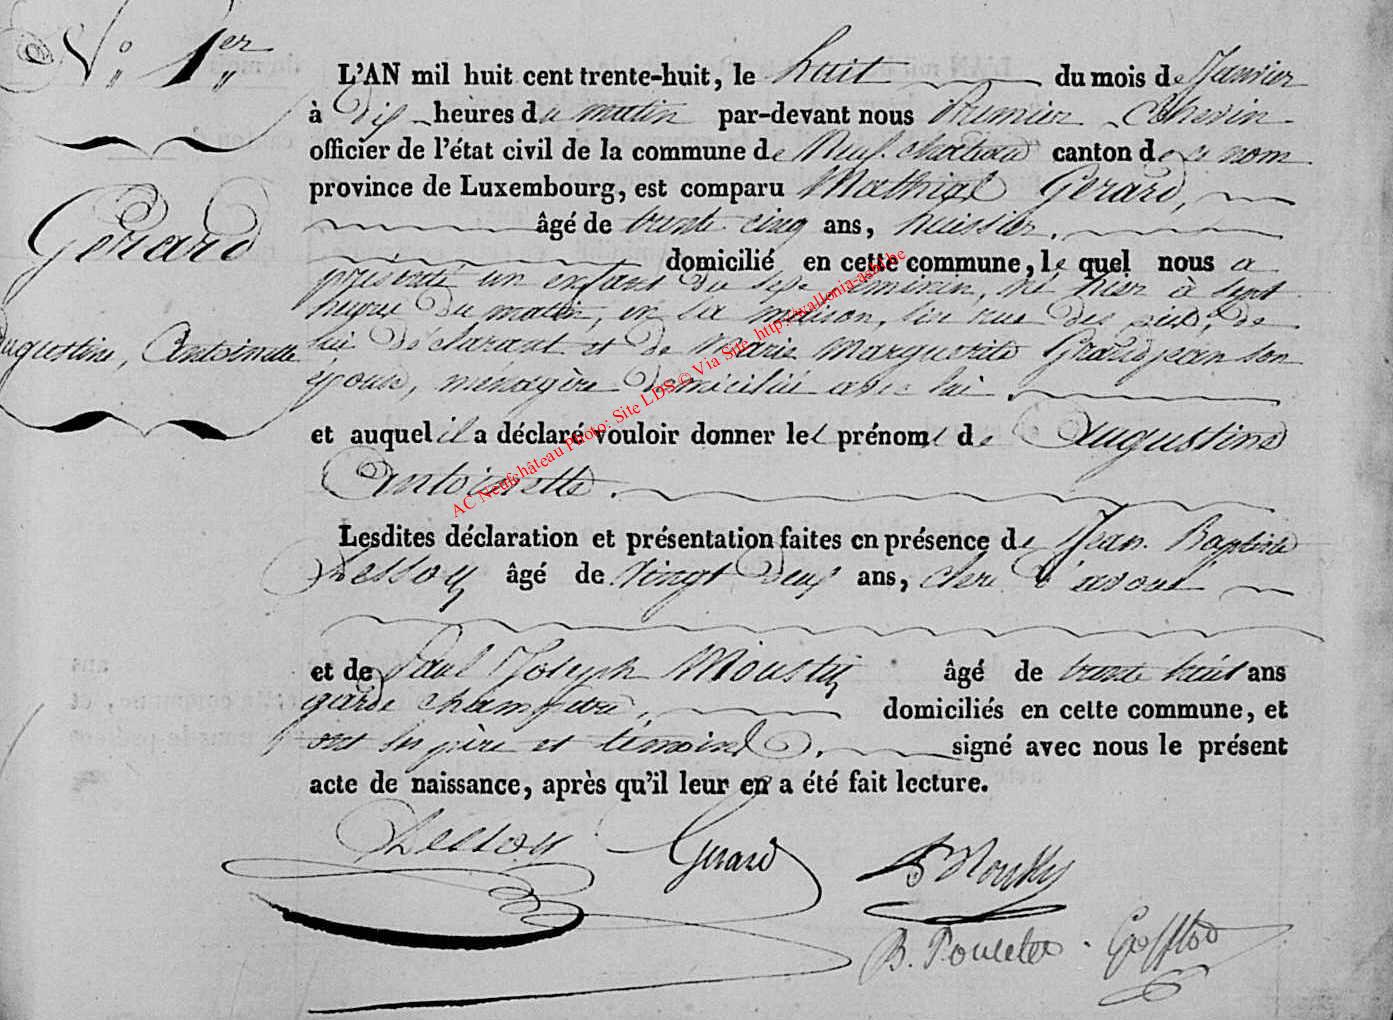 N° 1er
L'AN mil huit cent trente-huit, le huit du mois de Janvier
à dix heures du matin par-devant nous Premier Echevin
officier de l'état civil de la commune de Neufchateau canton de ce nom
province de Luxembourg, est comparu Mathias Gerard,
âgé de trente cinq ans, huissier,
domicilié en cette commune, le quel nous a
présenté un enfant du sexe féminin, né hier à sept
heures du matin, en sa maison, sise rue de
lui déclarant et de Marie Marguerite Grandjean son
épouse, ménagère domiciliée avec lui.
et auquel il a déclaré vouloir donner les prénoms de Augustine
Antoinette.
Lesdites déclaration et présentation faites en présence de Jean Baptiste
âgé de vingt deux ans, clerc d'avoué
et de Paul Joseph Moustÿ âgé de trente huit ans
garde champêtre, domiciliés en cette commune, et
ont les père et témoins signé avec nous le présent
acte de naissance, après qu'il leur en a été fait lecture.
Gérard
Augustine, Antoinette
Gerard
B. Poncelet
AC Neufchâteau Photo: Site LDS © Via Site http://wallonia-asbl.be